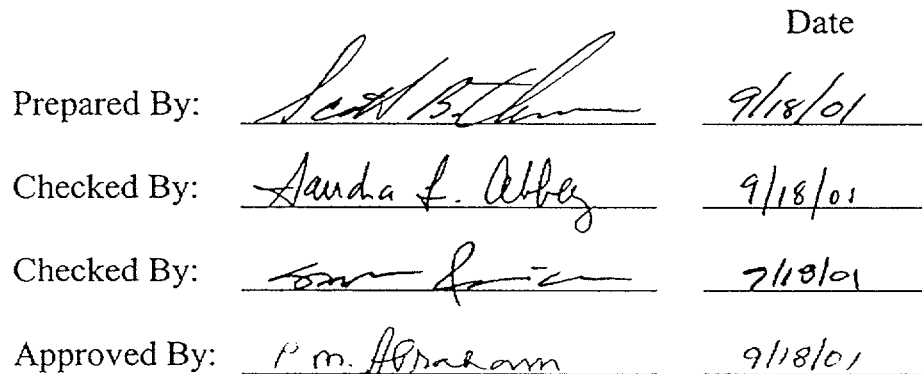 Date
Prepared By: Scott 9/18/01
Checked By: Sandra L. Abbey 9/18/01
Checked By:
Approved By: P. M. Abraham 9/18/01